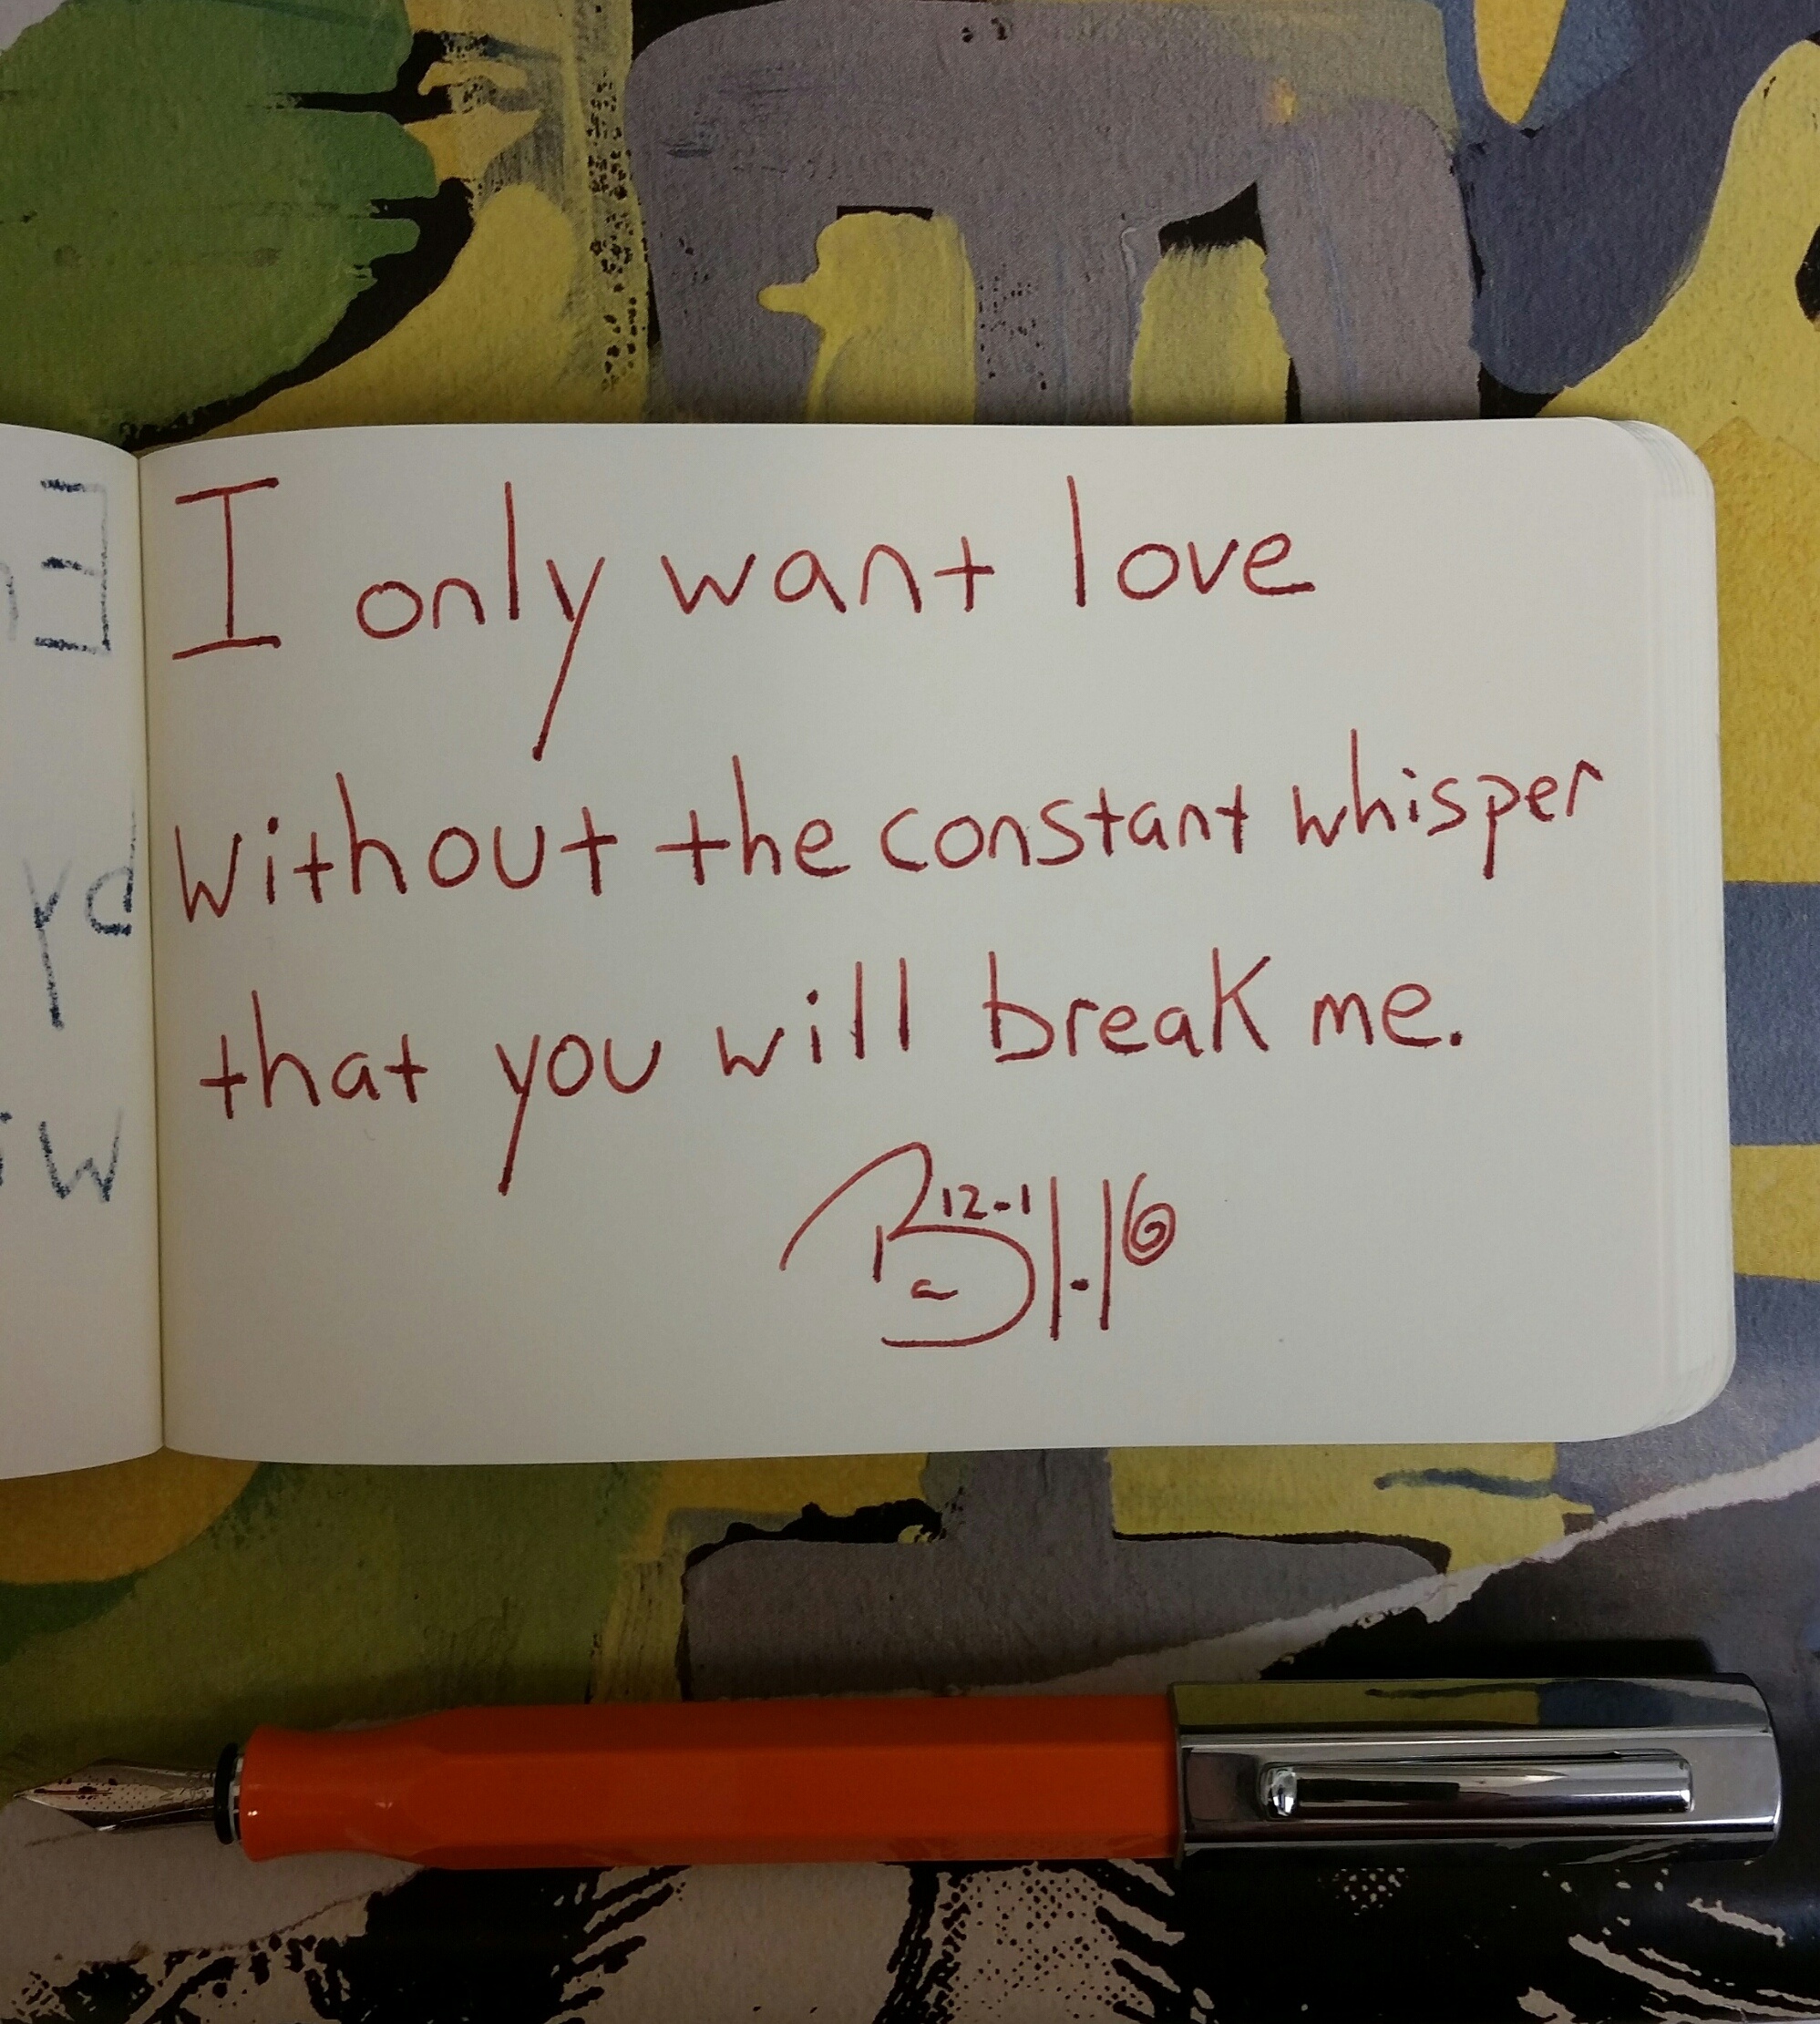 I only want love
without the constant whisper
that you will break me.
12-1